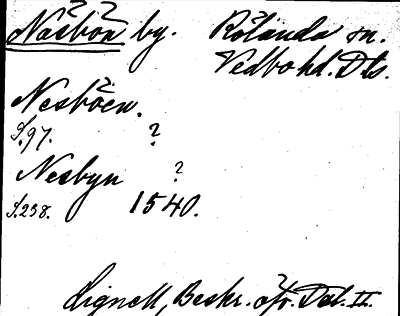 Näsbön by. Rölanda sn.
Vedbo hd. Dls.
Nesböen.
S.97. ?
Nesbyn ?
S.238. 1540.
Lignell, Beskr. öfr. Dal. II.